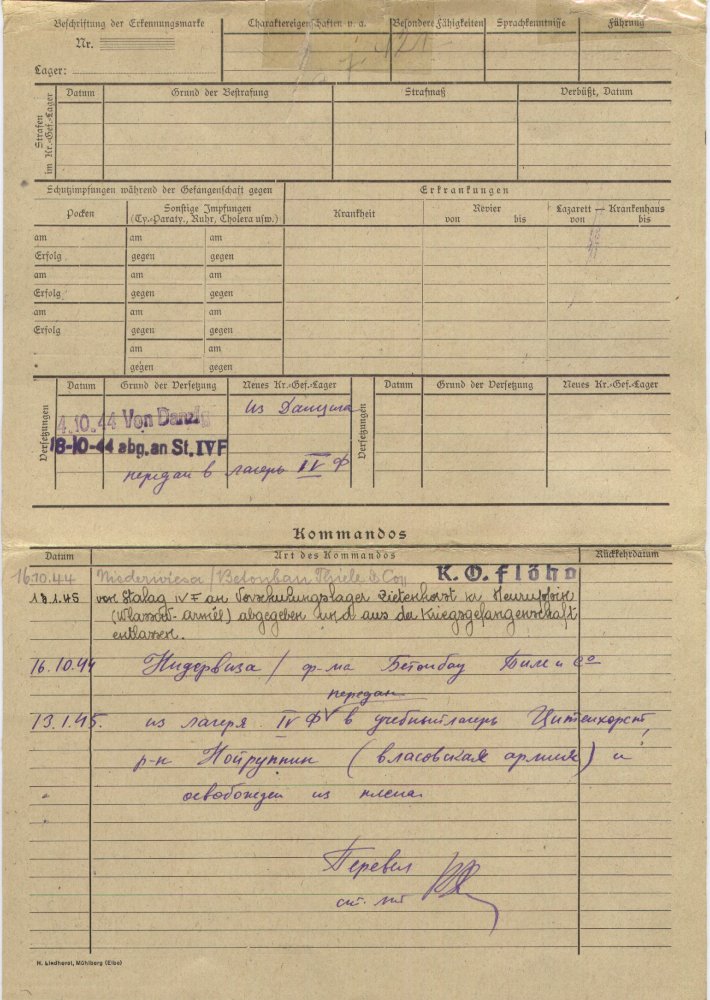 Beschriftung der Erkennungsmarke
Nr.
Lager:
Charaktereigenschaften u. a.
Besondere Fähigkeiten
Sprachkenntnisse
Führung
Strafen im Kr.-Gef.-Lager
Datum
Grund der Bestrafung
Strafmaß
Verbüßt, Datum
Schutzimpfungen während der Gefangenschaft gegen
Erkrankungen
Pocken
Sonstige Impfungen
(Ty.-Paraty., Ruhr, Cholera usw.)
Krankheit
Revier
von bis
Lazarett — Krankenhaus
von bis
am am am
Erfolg gegen gegen
am am am
Erfolg gegen gegen
am am am
Erfolg gegen gegen
am am
gegen gegen
Versetzungen
Datum
Grund der Versetzung
Neues Kr.-Gef.-Lager
Versetzungen
Datum
Grund der Versetzung
Neues Kr.-Gef.-Lager
4.10.44 Von Danzig
из Данцига
18-10-44 abg. an St. IV F
передан в лагерь IV Ф
Kommandos
Datum
Art des Kommandos
Rückkehrdatum
16.10.44 Niederwiesa / Betonbau Thiele & Co K. O. flöha
13.1.45 von Stalag IV F an Vorschulungslager Zietenhorst Kr. Neuruppin
(Wlassow-armee) abgegeben und aus der Kriegsgefangenschaft
entlassen.
16.10.44 Нидервиза / ф-ма Бетонбау Тиле и Со
передан
13.1.45. из лагеря IV Ф в учебный лагерь Цитенхорст,
р-н Нойруппин (власовская армия) и
освобожден из плена.
Перевел
ст. лт
H. Liedherst, Mühlberg (Elbe)